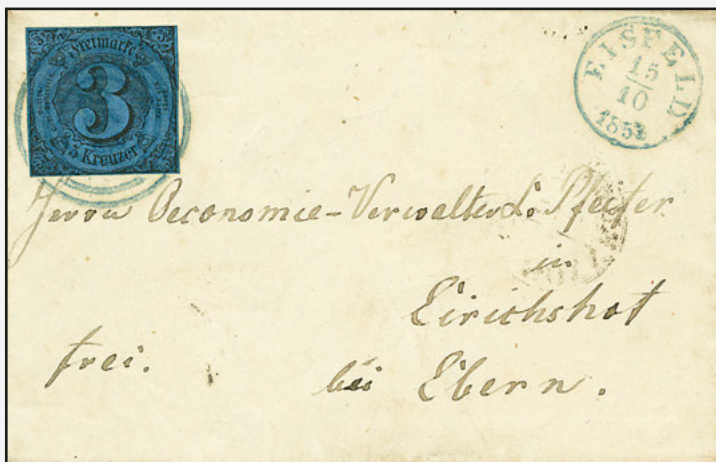 Freimarke
3
3 Kreuzer
EISFELD
15
10
1853
Herrn Oeconomie-Verwalter L. Pfeifer
in
Eirichshof
frei.
bei Ebern.